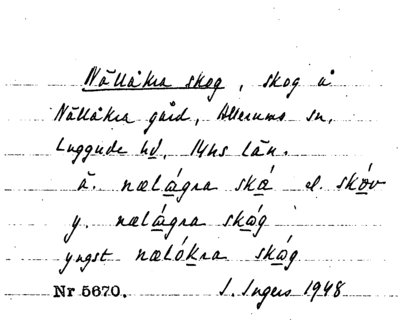 Nällåkra skog, skog å
Nällåkra gård, Allerums sn,
Luggude hd, Mhs län.
ä. nælágra ská el. skóv
y. nælágra skóg
yngst nælókra skóg
Nr 5670. I. Ingers 1948